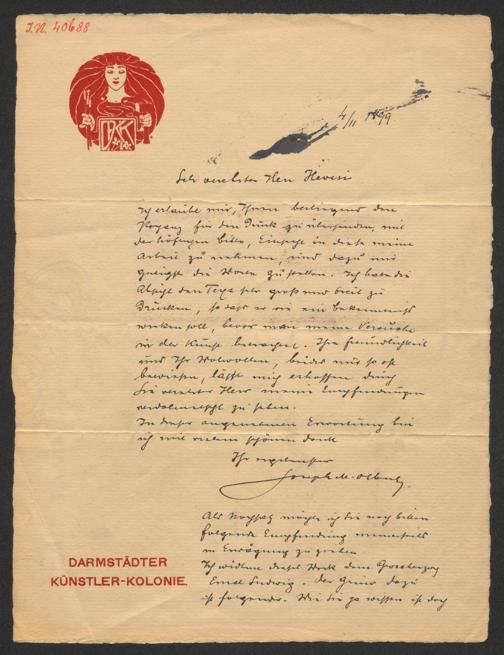 I.N. 40688
4/II 1899
Sehr verehrter Herr Hevesi
Ich erlaube mir, Ihnen beiliegend den
für den Druck zu übersenden, mit
der höflichen bitte, Einsicht in diese meine
Arbeit zu nehmen, und dazu mir
die Worte zu stellen. Ich habe die
Absicht den Text sehr gross und breit zu
Drucken, so dass er wie ein bekenntniss
wirken soll, bevor man meine Versuche
in der Kunst betrachtet. Ihre freundlichkeit
und Ihr Wolwollen, beides mir so oft
bewiesen, lässt mich erhoffen durch
Sie verehrter Herr meine Empfindungen
verdolmetscht zu sehen.
In dieser angenehmen Erwartung bin
ich mit vielem schönen dank
Ihr ergebenster
Joseph M. Olbrich
Als Nachsatz möchte ich Sie noch bitten
folgende Empfindung meinerseits
in Erwägung zu ziehen
Ich widme dieses Werk dem Grossherzog
Ernst Ludwig. der dazu
ist folgender. Wie Sie ja wissen ist doch
DARMSTÄDTER
KÜNSTLER-KOLONIE.